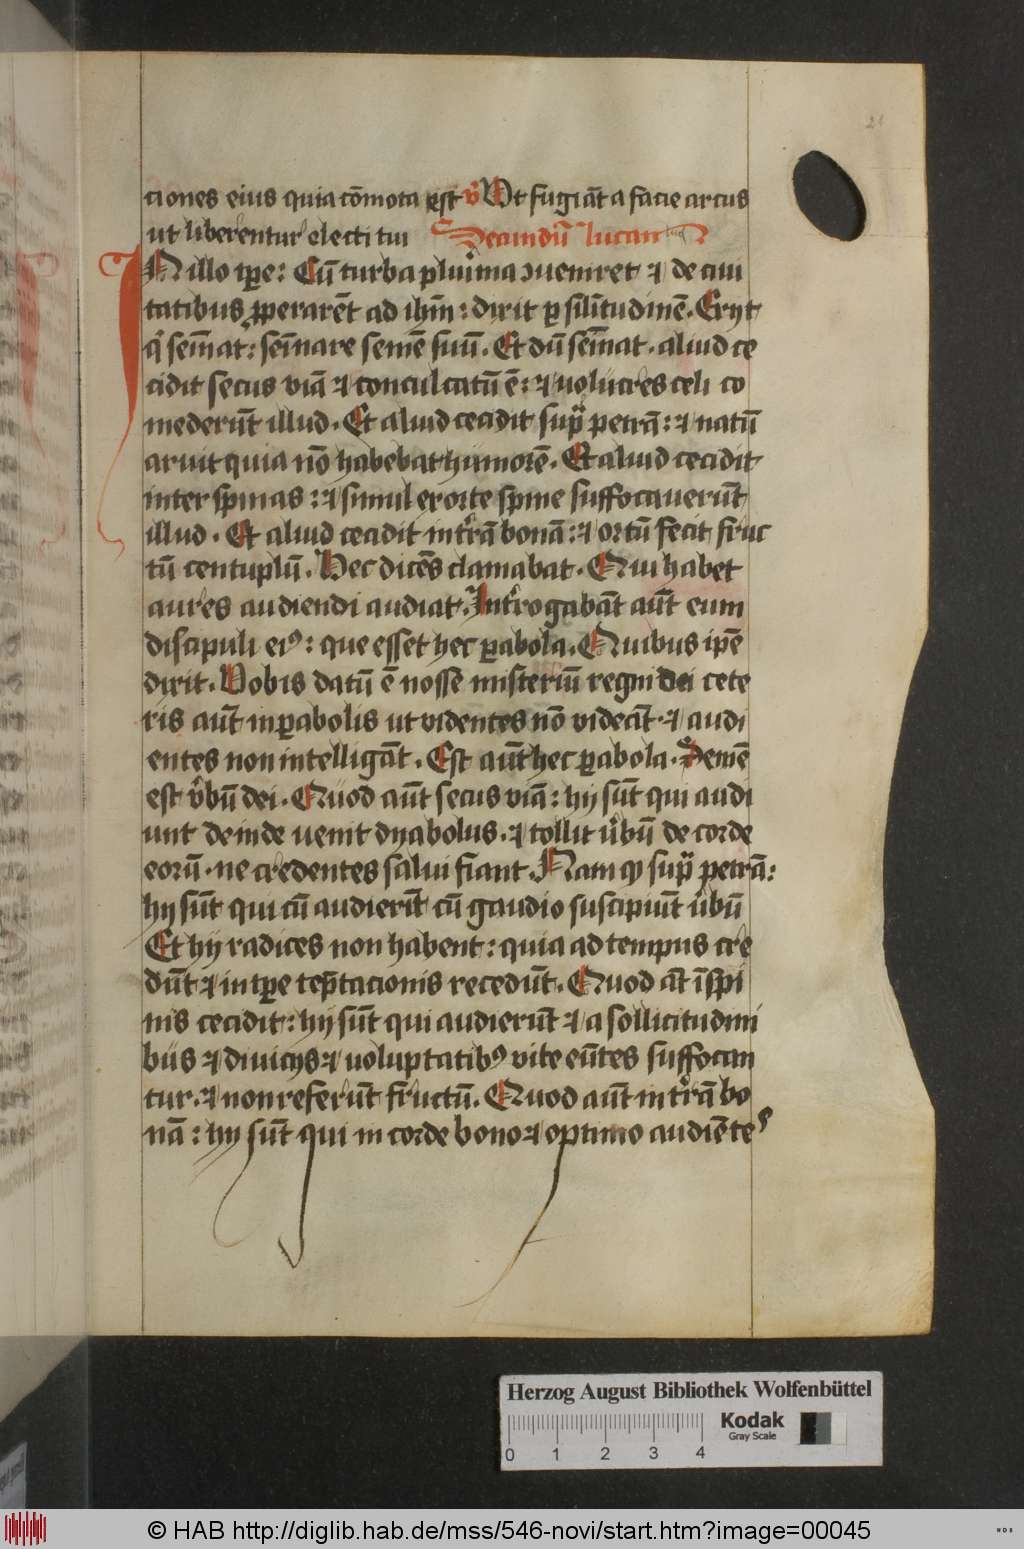 21
ciones eius quia cōmota est v̊ Ut fugiāt a facie arcus
ut liberentur electi tui Secundū lucam
IN illo tp̄re: Cū turba plurima ↄueniret ⁊ de ciui
tatibus ꝓperarēt ad ihm̄: dixit ꝑ silitudinē. Exijt
qͥ semīat: semīnare semē suū. Et dū semīat. aliud ce
cidit secus viā ⁊ conculcatū ē: ⁊ uolucres celi co
mederūt illud. Et aliud cecidit supͣ petrā: ⁊ natū
aruit quia nō habebat humorē. Et aliud cecidit
inter spinas: ⁊ simul exorte spine suffocauerūt
illud. Et aliud cecidit in tͬrā bonā: ⁊ ortū fecit fruc
tū centuplū. Hec dicēs clamabat. Qui habet
aures audiendi audiat. Intͬrogabāt aūt eum
discipuli eiꝰ: que esset hec ꝑabola. Quibus ip̄e
dixit. Vobis datū ē nosse misteriū regni dei cete
ris aūt in ꝑabolis ut videntes nō videāt. ⁊ audi
entes non intelligāt. Est aūt hec ꝑabola. Semē
est v̓bū dei. Quod aūt secus viā: hij sūt qui audi
unt deinde uenit dyabolus. ⁊ tollit u̓bū de corde
eorū. ne credentes salui fiant. Nam qͩ supͣ petrā:
hij sūt qui cū audierīt cū gaudio suscipiūt u̓bū
Et hij radices non habent: quia ad tempus cre
dūt ⁊ in tꝑe tēptacionis recedūt. Quod āt ī spi
nis cecidit: hij sūt qui audierūt ⁊ a sollicitudini
bus ⁊ diuicijs ⁊ uoluptatibꝰ vite eūtes suffocan
tur. ⁊ non referūt fructū. Quod aūt in tͬrā bo
nā: hij sūt qui in corde bono ⁊ optimo audiētes
Herzog August Bibliothek Wolfenbüttel
Kodak
Gray Scale
0 1 2 3 4
© HAB http://diglib.hab.de/mss/546-novi/start.htm?image=00045